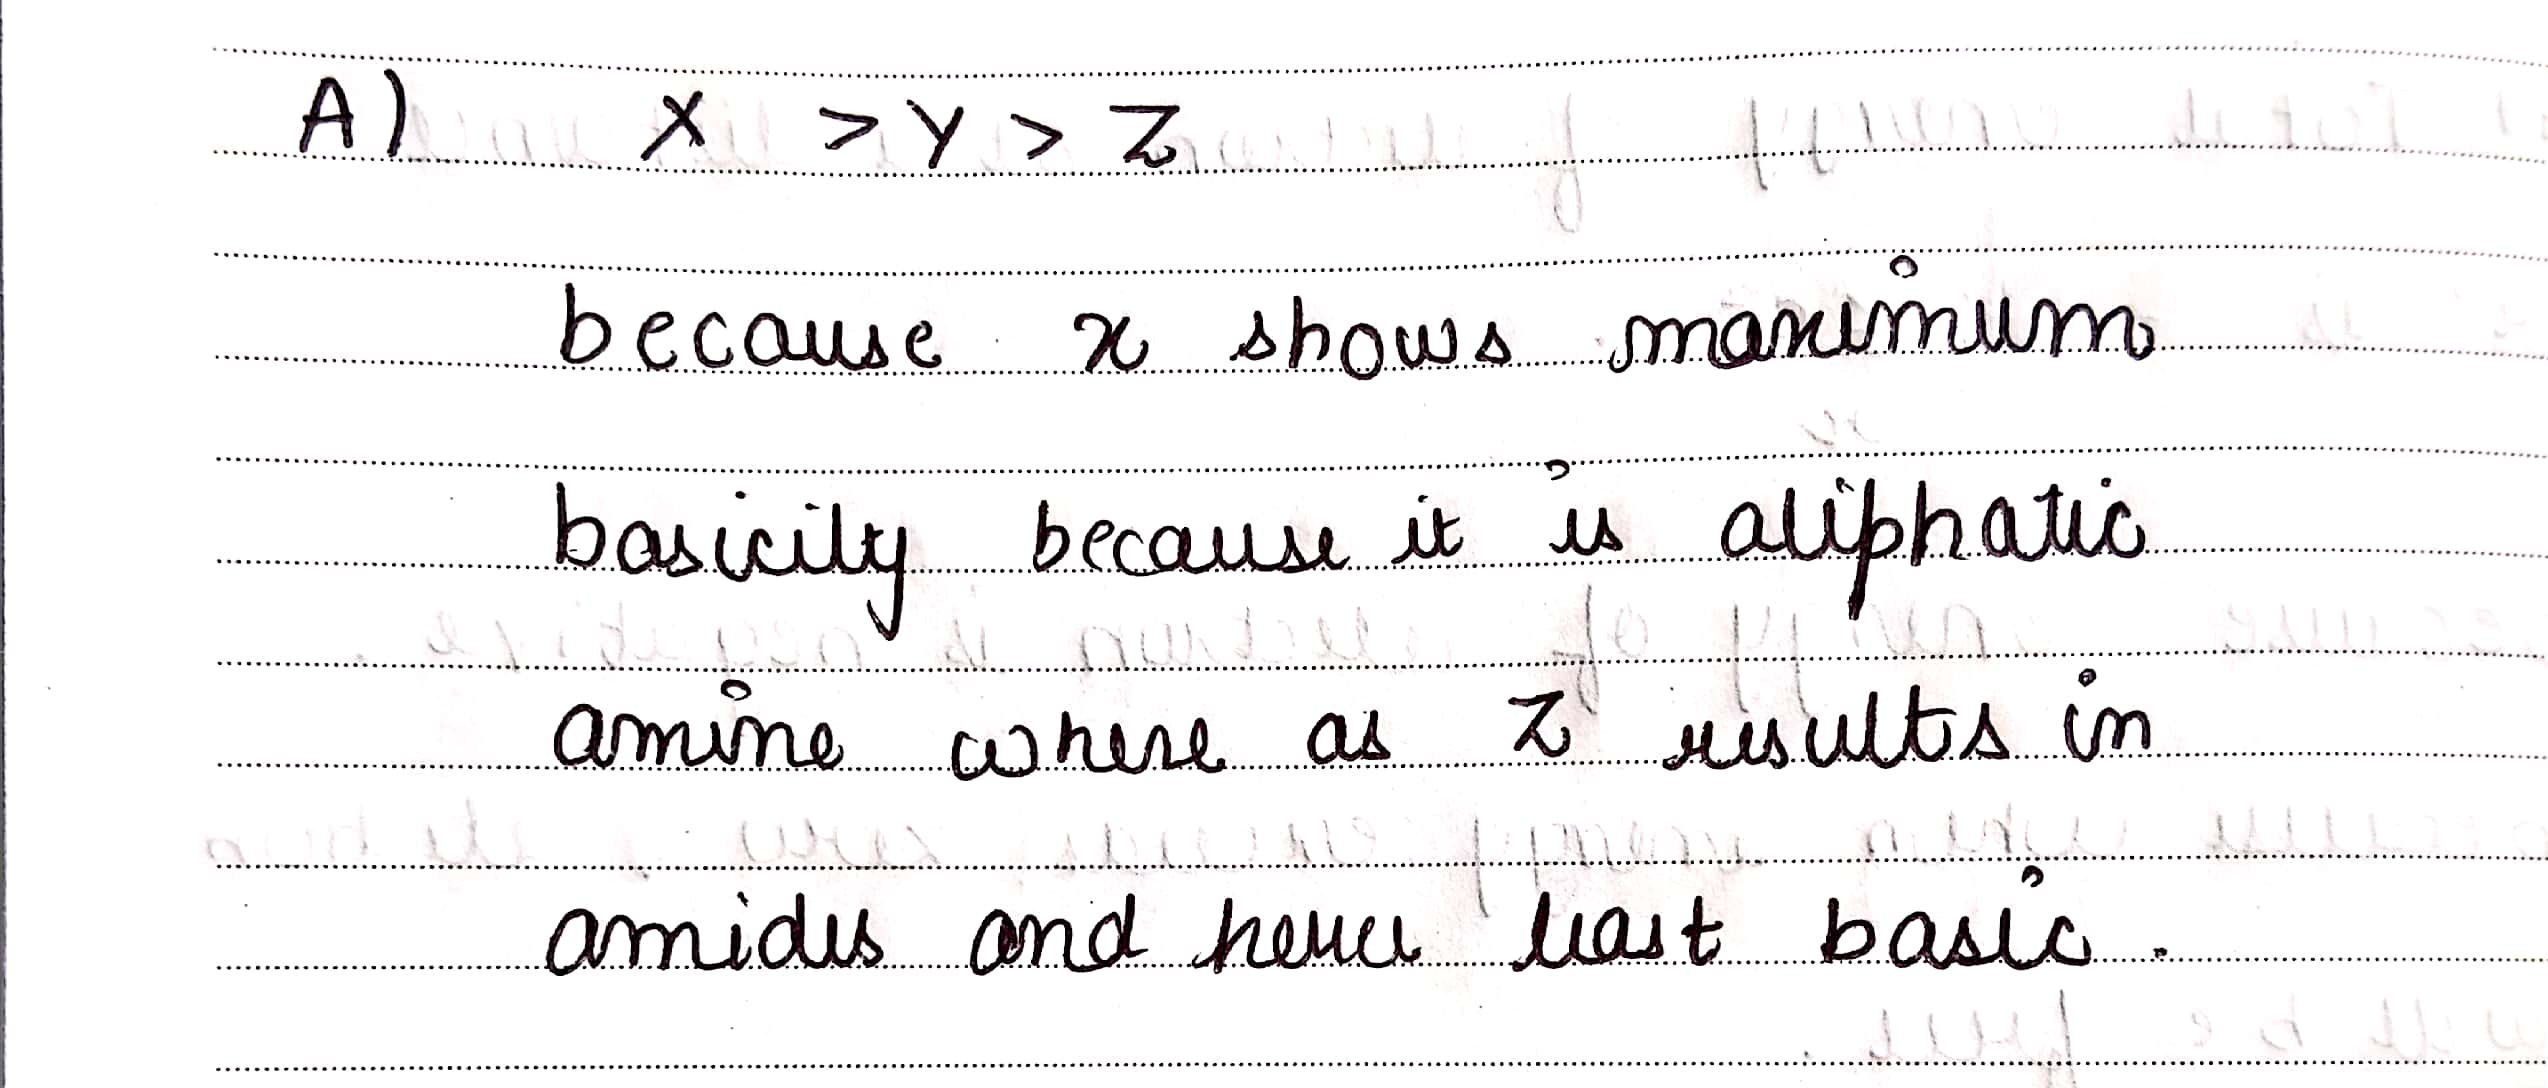 A) X > Y > Z
because x shows maximum
basicity because it is aliphatic
amine where as Z results in
amides and hence least basic.